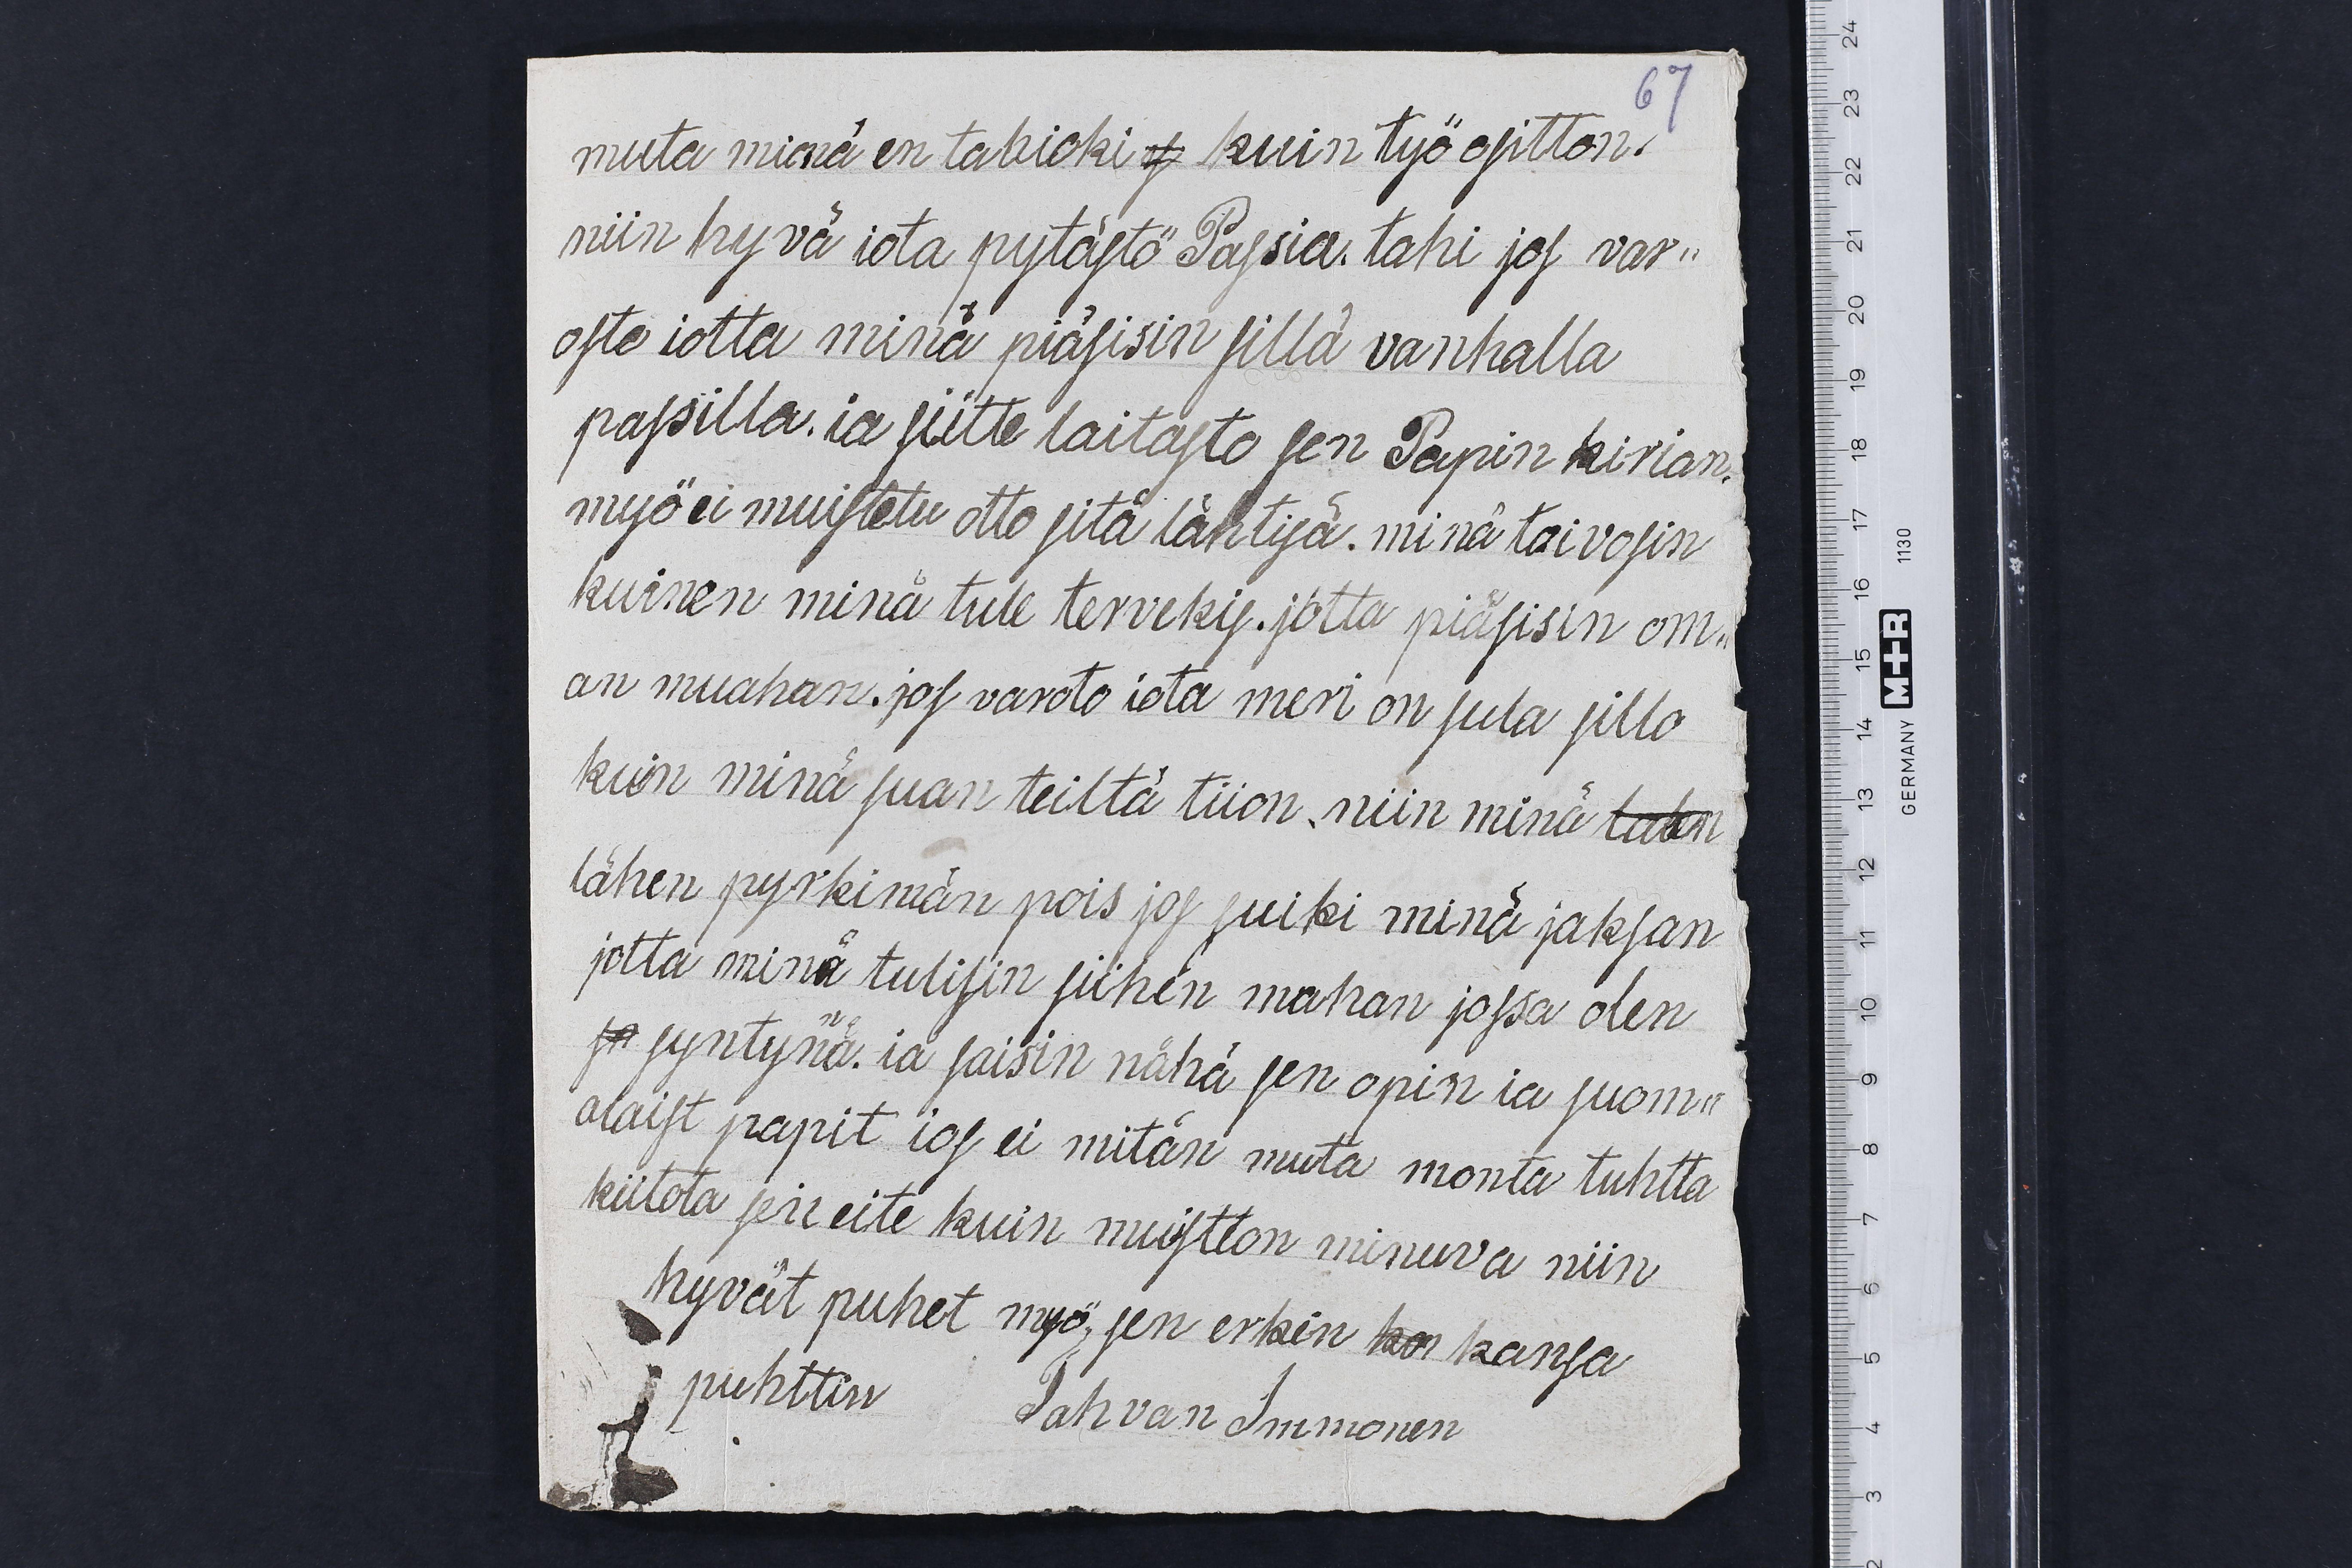 67
muta minä en tahioki kuin työ ositton.
niin hyvä iota pytästö Passia. tahi jos var"
oste iotta minä piäsisin sillä vanhalla
passilla. ia siitte laitasto sen Papin kirian.
myö ei muistetu otto sitä lähtisä. minä toivosin
kuinen minä tule terveksi. jotta piäsisin om"
an muahan. jos varoto iota meri on sula sillo
kuin minä suan teiltä tiion. niin minä
lähen pyrkimän pois jos suiki minä jaksan
jotta minä tulisin siihen mahan jossa olen
syntynä. ia saisin nähä sen opin ia suom"
alaist papit ios ei mitän muta monta tuhtta
kiitota sen eite kuin muistton minuva niin
hyvät puhet myö sen erkin kansa
puhttin Pahvan Immonen
24
23
22
21
20
19
18
17
16
15
14
13
12
11
10
9
8
7
6
5
4
3
2
GERMANY M+R 1130